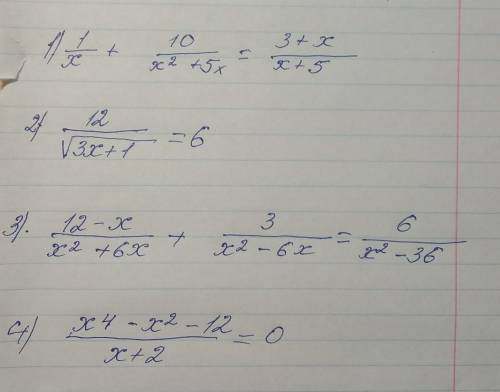 1) 1/x + 10/(x² + 5x) = (3 + x)/(x + 5)
2) 12/√(3x + 1) = 6
3). (12 - x)/(x² + 6x) + 3/(x² - 6x) = 6/(x² - 36)
4) (x4 - x² - 12)/(x + 2) = 0